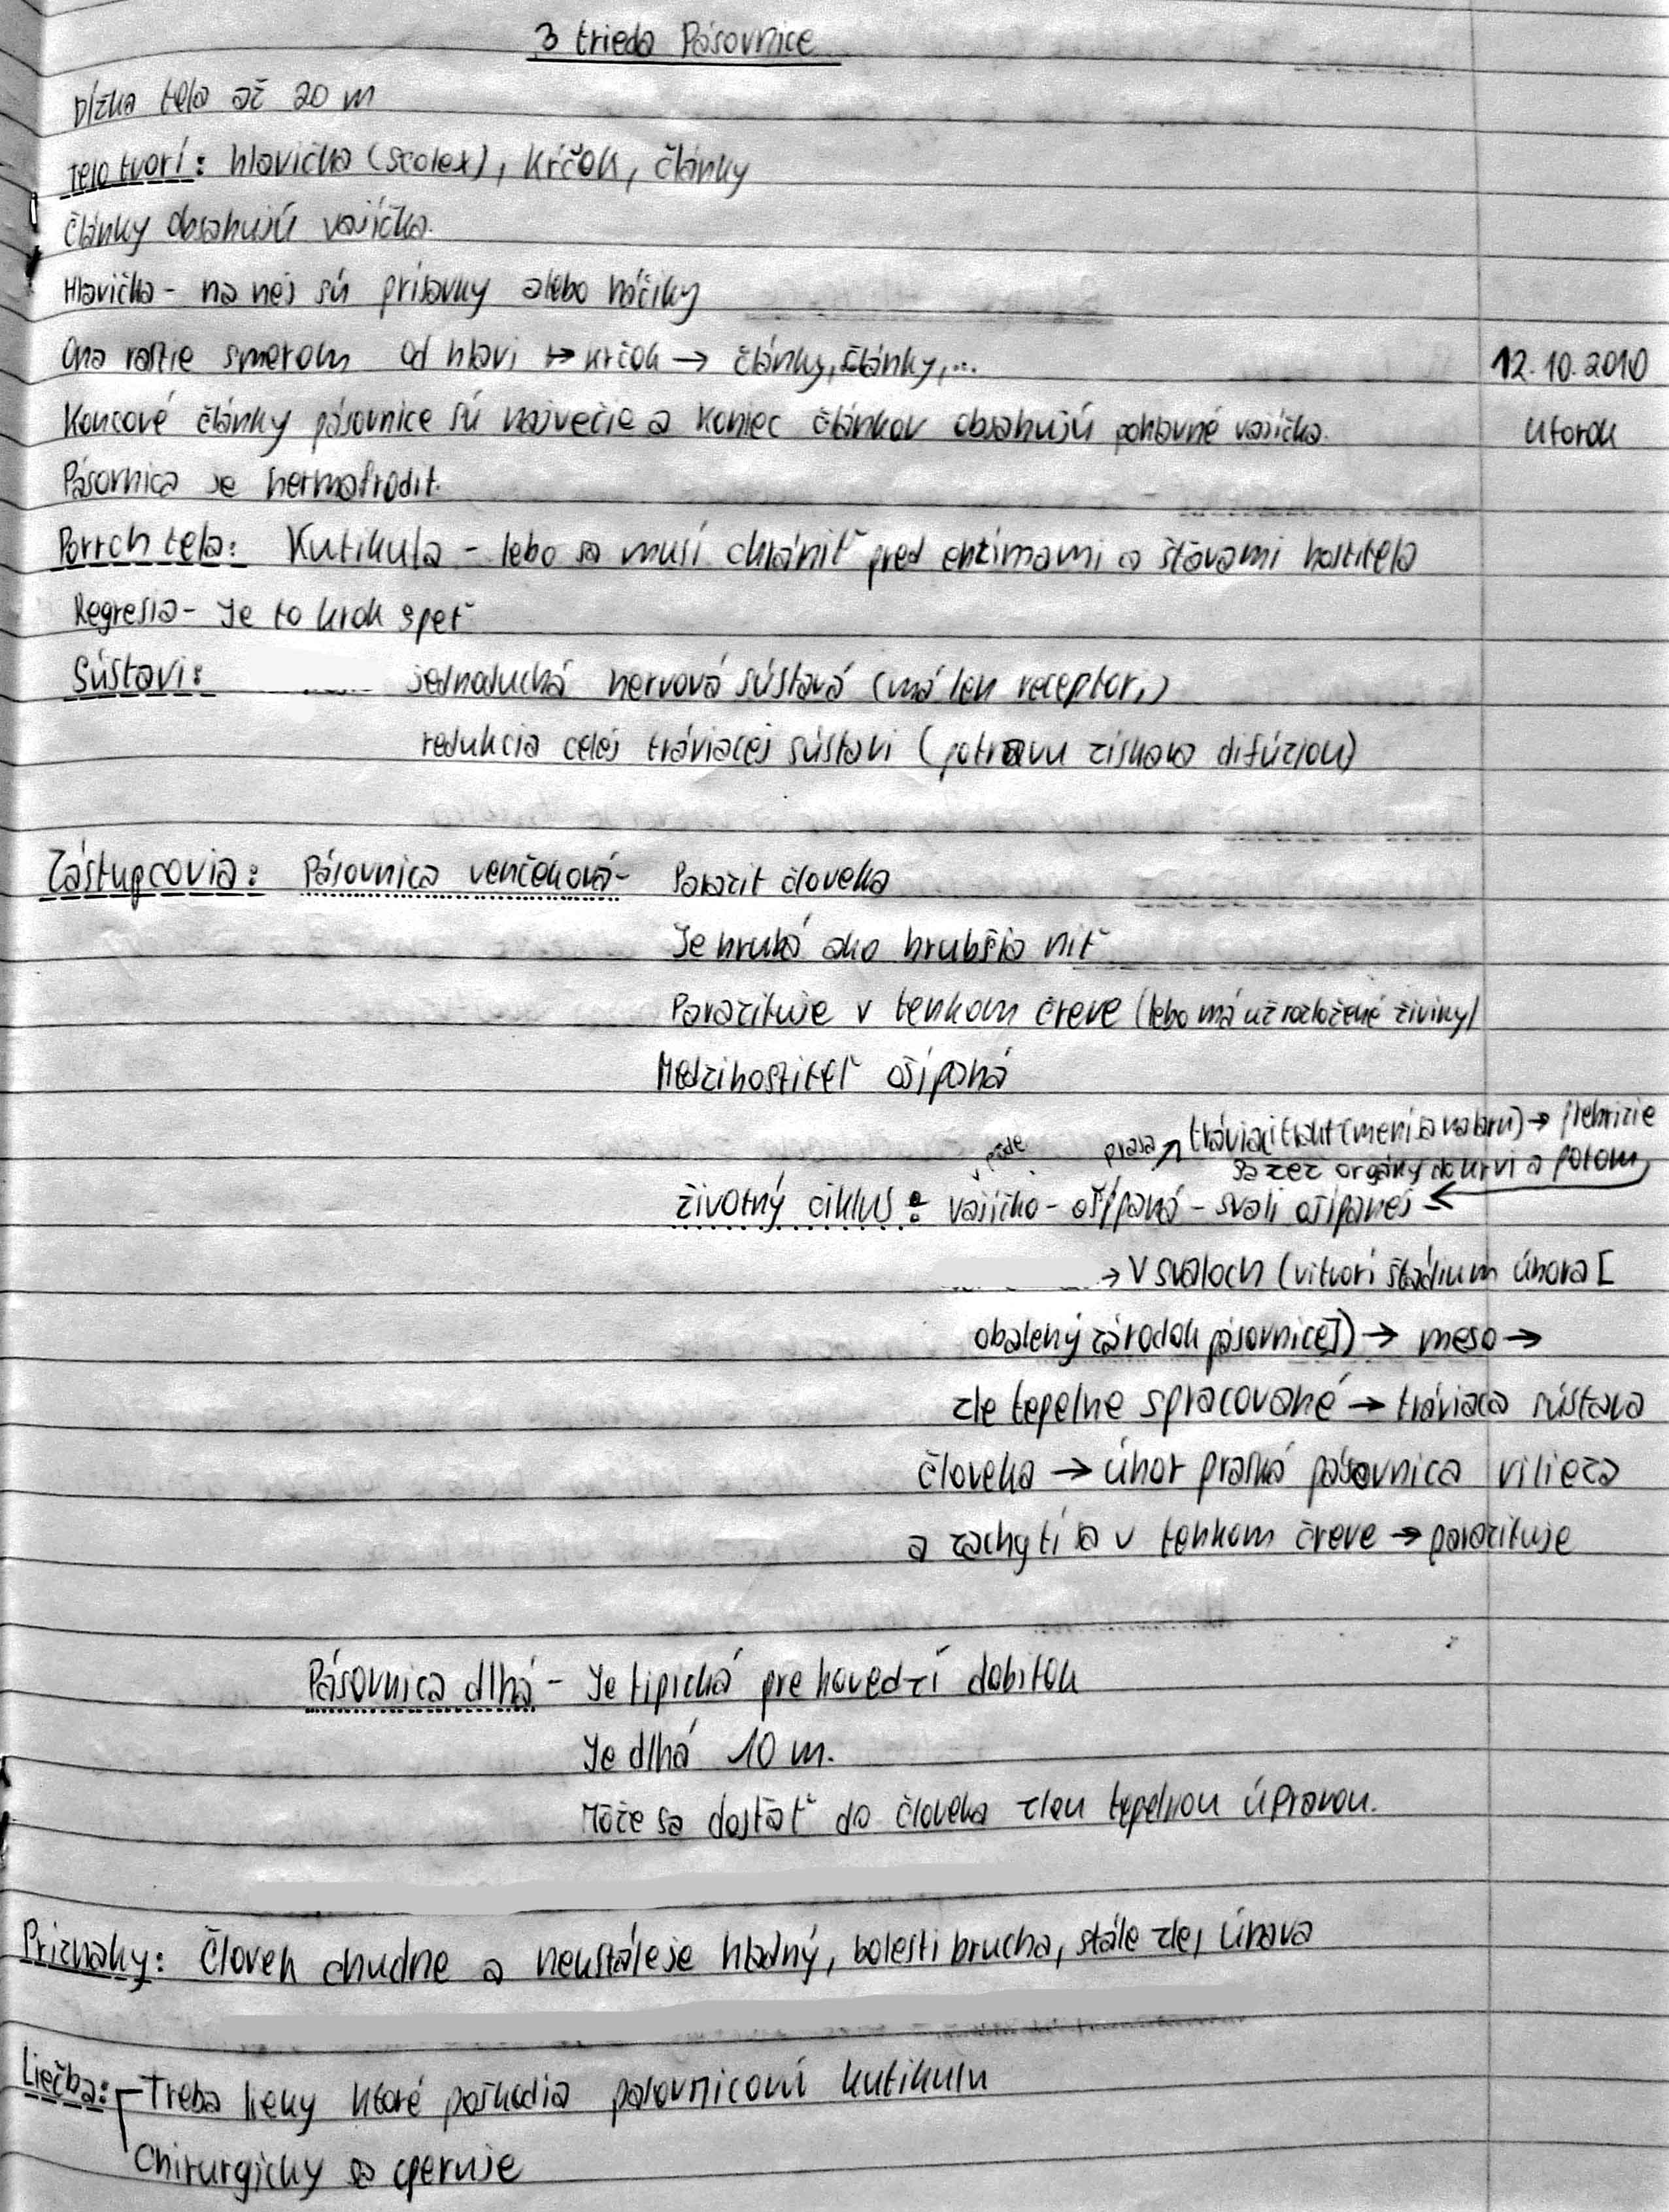 3 trieda Pásovnice
Dĺžka tela až 20 m
Telo tvorí: hlavička (scolex), kŕčok, články
články obsahujú vajíčka.
Hlavička - na nej sú prísavky alebo háčiky
Ona rastie smerom od hlavi → krčok → články, články,...
12.10.2010
Koncové články pásovnice sú največie a koniec článkov obsahujú pohlavné vajíčka.
Utorok
Pásovnica je hermafrodit.
Povrch tela: Kutikula - lebo sa musí chrániť pred enzimami a šťavami hostiteľa
Regresia - Je to krok speť
Sústavi: jednoduchá nervová sústavá (má len receptori)
redukcia celej tráviacej sústavi (potravu získava difúziou)
Zástupcovia: Pásovnica venčeková - Parazit človeka
Je hrubá ako hrubšia niť
Parazituje v tenkom čreve (lebo má už rozložené živiny)
Medzihostiteľ ošípaná
prasa ↗ tráviaci trakt (mení sa na larvu) →
v pôde
sa cez orgány do krvi a potom
životný ciklus: vajíčko - ošípaná - svali ošípanej ←
→ V svaloch (vitvorí štádium úhora [
obalený zárodok pásovnice]) → meso →
zle tepelne spracované → tráviaca sústava
človeka → úhor praská pásovnica vilieza
a zachytí sa v tenkom čreve → parazituje
Pásovnica dlhá - Je tipická pre hovedzí dobitok
Je dlhá 10 m.
Môže sa dostať do človeka zlou tepelnou úpravou.
Príznaky: Človek chudne a neustále je hladný, bolesti brucha, stále zle, únava
Liečba: Treba lieky ktoré poškodia pásovnicovú kutikulu
Chirurgicky sa operuje